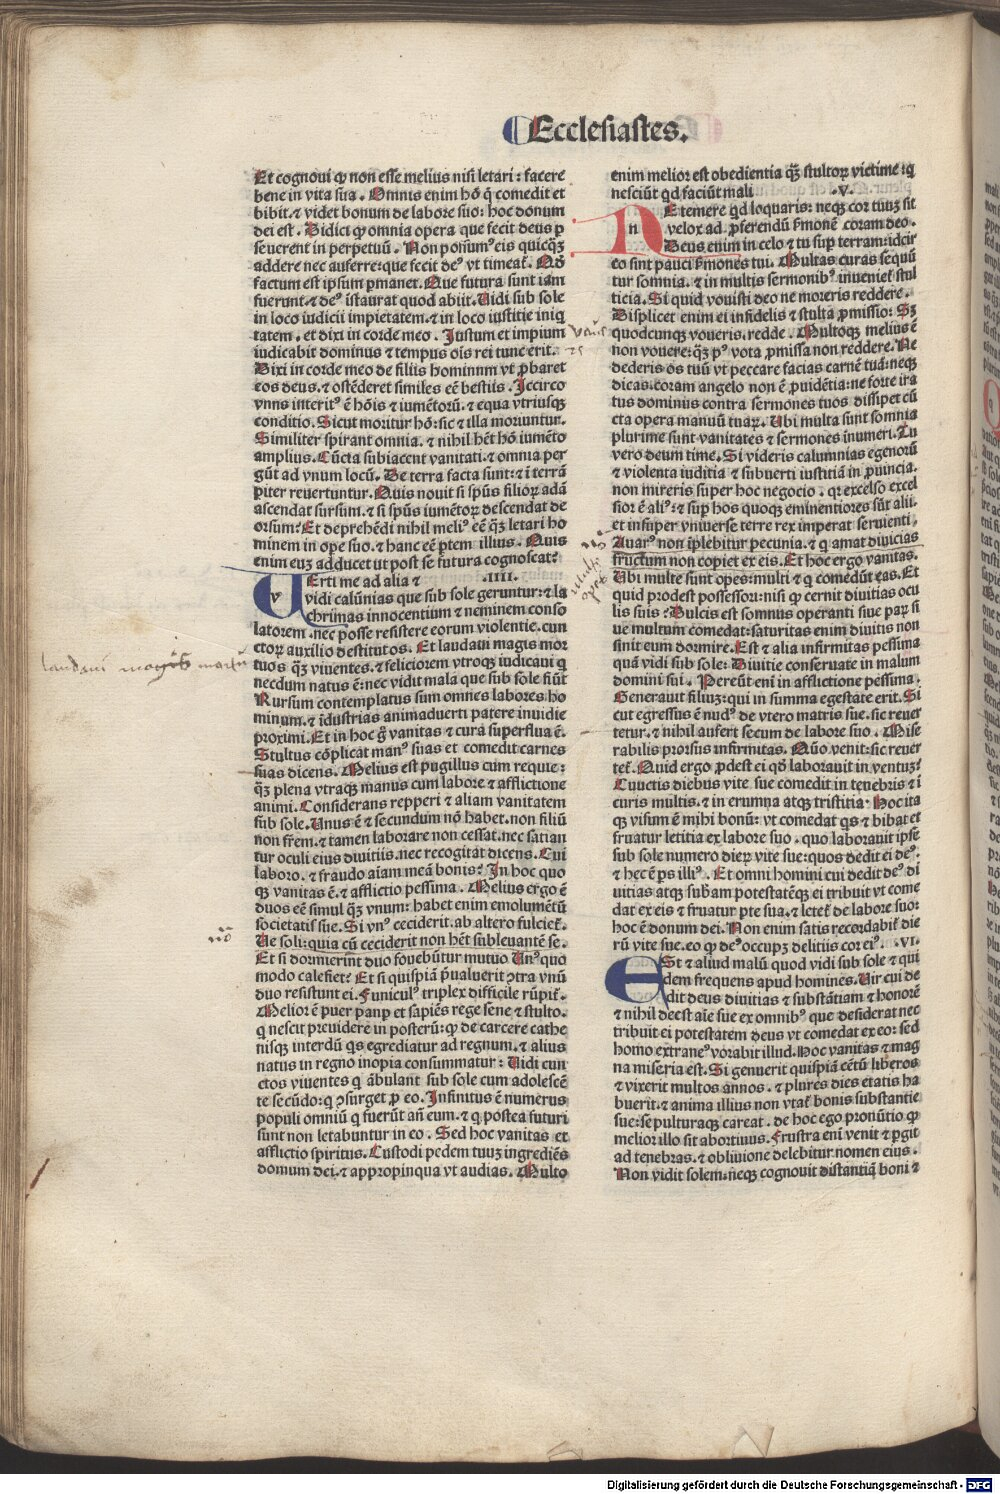 Ecclesiastes.
Et cognoui ꝙ non esse melius nisi letari: facere
bene in vita sua. Omnis enim hō q̇ comedit et
bibit. ⁊ videt bonum de labore suo: hoc donum
dei est. Didici ꝙ omnia opera que fecit deus ꝑ
seuerent in perpetuū. Non possumꝰ eis quicqꝫ
addere nec auferre: que fecit deꝰ vt timeat᷑. Qđ
factum est ipsum ꝑmanet. Que futura sunt iam
fuerunt. ⁊ deꝰ īstaurat quod abijt. Vidi sub sole
in loco iudicii impietatem. ⁊ in loco iustitie iniq
tatem. et dixi in corde meo. Justum et impium
iudicabit dominus ⁊ tempus oīs rei tunc erit.
Dixi in corde meo de filiis hominum vt ꝓbaret
eos deus. ⁊ ostēderet similes eē bestiis. Jccirco
vnus interitꝰ ē hōis ⁊ iumētorū. ⁊ equa vtriusqꝫ
conditio. Sicut moritur hō: sic ⁊ illa moriuntur.
Similiter spirant omnia. ⁊ nihil hēt hō iumēto
amplius. Cūcta subiacent vanitati. ⁊ omnia per
gūt ad vnum locū. De terra facta sunt: ⁊ ī terrā
ꝑiter reuertuntur. Quis nouit si spūs filioꝝ adā
ascendat sursum. ⁊ si spūs iumētoꝝ descendat de
orsum? Et deprehēdi nihil meliꝰ eē qꝫ letari ho
minem in ope suo. ⁊ hanc eē ꝑtem illius. Quis
enim euꝫ adducet ut post se futura cognoscat?
VErti me ad alia ⁊ .IIII.
vidi calūnias que sub sole geruntur: ⁊ la
chrimas innocentium ⁊ neminem conso
latorem. nec posse resistere eorum violentie. cun
ctoꝝ auxilio destitutos. Et laudaui magis mor
tuos qꝫ viuentes. ⁊ feliciorem vtroqꝫ iudicaui q
necdum natus ē: nec vidit mala que sub sole fiūt
Rursum contemplatus sum omnes labores ho
minum. ⁊ īdustrias animaduerti patere inuidie
proximi. Et in hoc g̊ vanitas ⁊ cura superflua ē.
Stultus cōplicat manꝰ suas et comedit carnes
suas dicens. Melius est pugillus cum requie:
qꝫ plena vtraqꝫ manus cum labore ⁊ afflictione
animi. Considerans repperi ⁊ aliam vanitatem
sub sole. Vnus ē ⁊ secundum nō habet. non filiū
non frēm. ⁊ tamen laborare non cessat. nec satian
tur oculi eius diuitiis. nec recogitat dicens. Cui
laboro. ⁊ fraudo aīam meā bonis? Jn hoc quo
qꝫ vanitas ē. ⁊ afflictio pessima. Melius ergo ē
duos eē simul qꝫ vnum: habet enim emolumētū
societatis sue. Si vnꝰ ceciderit. ab altero fulciet᷑.
Ve soli: quia cū ceciderit non hēt subleuantē se.
Et si dormierint duo fouebūtur mutuo Vnꝰ quo
modo calefiet? Et si quispiā p̄ualuerit ꝯtra vnū
duo resistunt ei. Funiculꝰ triplex difficile rūpit᷑.
Melior ē puer paup et sapiēs rege sene ⁊ stulto.
q nescit preuidere in posterū: ꝙ de carcere cathe
nisqꝫ interdū qs egrediatur ad regnum. ⁊ alius
natus in regno inopia consummatur: Vidi cun
ctos viuentes q ābulant sub sole cum adolescē
te secūdo: q ꝯsurget ꝓ eo. Jnfinitus ē numerus
populi omniū q fuerūt an̄ eum. ⁊ q postea futuri
sunt non letabuntur in eo. Sed hoc vanitas et
afflictio spiritus. Custodi pedem tuuꝫ ingrediēs
domum dei. ⁊ appropinqua vt audias. Multo
enim melior est obedientia qꝫ stultoꝝ victime: q
nesciūt qd faciūt mali .V.
NE temere qd loquaris: neqꝫ cor tuuꝫ sit
velox ad ꝓferendū s̄monē coram deo.
Deus enim in celo ⁊ tu suꝑ terram: idcir
co sint pauci s̄mones tui. Multas curas sequū
tur somnia. ⁊ in multis sermonibꝰ inueniet᷑ stul
ticia. Si quid vouisti deo ne moreris reddere.
Displicet enim ei infidelis ⁊ stulta ꝓmissio: Sꝫ
quodcunqꝫ voueris. redde. Multoqꝫ melius ē
non vouere: qꝫ pꝰ vota ꝓmissa non reddere. Ne
dederis os tuū vt peccare facias carnē tuā: neqꝫ
dicas. coram angelo non ē ꝓuidētia: ne forte ira
tus dominus contra sermones tuos dissipet cū
cta opera manuū tuaꝝ. Ubi multa sunt somnia
plurime sunt vanitates ⁊ sermones inumeri. Tu
vero deum time. Si videris calumnias egenorū
⁊ violenta iuditia ⁊ subuerti iustitiā in ꝓuincia.
non mireris super hoc negocio. qꝛ excelso excel
sior ē aliꝰ: ⁊ suꝑ hos quoqꝫ eminentiores sūt alii.
et insuper vniuerse terre rex imperat seruienti.
Auarꝰ non īplebitur pecunia. ⁊ q amat diuicias
fructum non capiet ex eis. Et hoc ergo vanitas.
Ubi multe sunt opes: multi ⁊ q comedūt eas. Et
quid prodest possessori: nisi ꝙ cernit diuitias ocu
lis suis? Dulcis est somnus operanti siue paꝝ si
ue multum comedat: saturitas enim diuitis non
sinit eum dormire. Est ⁊ alia infirmitas pessima
quā vidi sub sole: Diuitie conseruate in malum
domini sui. Pereūt enī in afflictione pessima.
Generauit filiuꝫ: qui in summa egestate erit. Si
cut egressus ē nudꝰ de vtero matris sue. sic reuer
tetur. ⁊ nihil aufert secum de labore suo. Mise
rabilis prorsus infirmitas. Quō venit: sic reuer
tet᷑. Quid ergo ꝓdest ei qđ laborauit in ventuꝫ?
Cunctis diebus vite sue comedit in tenebris ⁊ ī
curis multis. ⁊ in erumna atqꝫ tristitia. Hoc ita
qꝫ visum ē mihi bonū: vt comedat qs ⁊ bibat et
fruatur letitia ex labore suo. quo laborauit ipse
sub sole numero dieꝝ vite sue: quos dedit ei deꝰ.
⁊ hec ē ꝑs illiꝰ. Et omni homini cui dedit deꝰ di
uitias atqꝫ sub̄am potestatēqꝫ ei tribuit vt come
dat ex eis ⁊ fruatur ꝑte sua. ⁊ letet᷑ de labore suo:
hoc ē donum dei. Non enim satis recordabit᷑ die
rū vite sue. eo ꝙ deꝰ occupꝫ delitiis cor eiꝰ. .VI.
ESt ⁊ aliud malū quod vidi sub sole ⁊ qui
dem frequens apud homines. Vir cui de
dit deus diuitias ⁊ substātiam ⁊ honorē
⁊ nihil deest aīe sue ex omnibꝰ que desiderat nec
tribuit ei potestatem deus vt comedat ex eo: sed
homo extraneꝰ vorabit illud. Hoc vanitas ⁊ mag
na miseria est. Si genuerit quispiā cētū liberos
⁊ vixerit multos annos. ⁊ plures dies etatis ha
buerit. ⁊ anima illius non vtat᷑ bonis substantie
sue: sepulturaqꝫ careat. de hoc ego pronūtio ꝙ
melior illo sit abortiuus. Frustra enī venit ⁊ ꝑgit
ad tenebras. ⁊ obliuione delebitur nomen eius.
Non vidit solem: neqꝫ cognouit distantiā boni ⁊
Digitalisierung gefördert durch die Deutsche Forschungsgemeinschaft - DFG